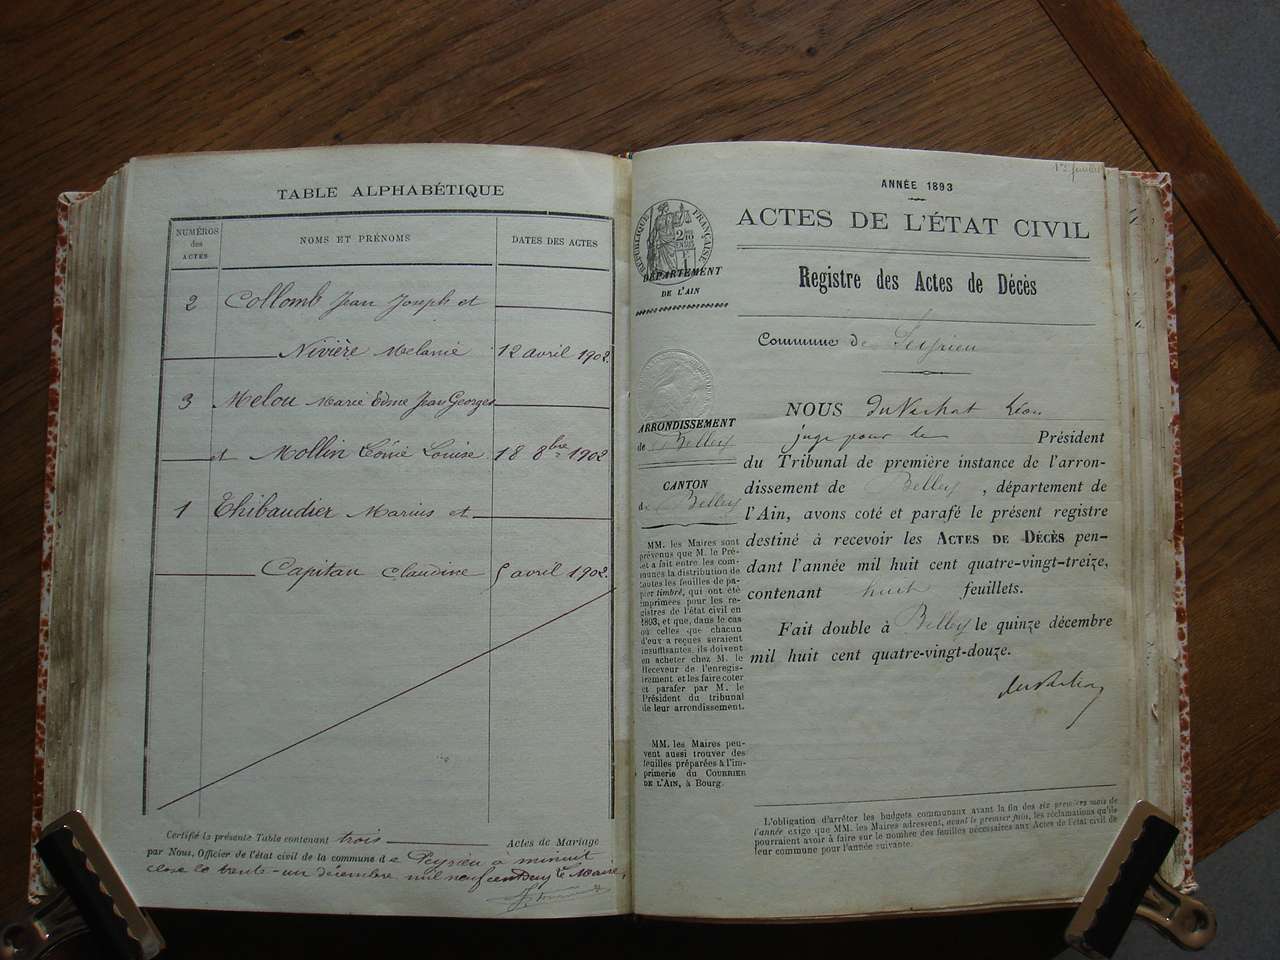 TABLE ALPHABÉTIQUE
NUMÉROS des ACTES
NOMS ET PRÉNOMS
DATES DES ACTES
2 Collomb Jean Joseph et
Nivière Melanie 12 avril 1902.
3 Melou Marie Edme Jean Georges
et Mollin Louise 18 8bre 1902
1 Thibaudier Marius et
Capitan Claudine 5 avril 1902.
Certifié la présente Table contenant trois Actes de Mariage
par Nous, Officier de l'état civil de la commune de Peyrieu à minuit
close le trente-un décembre mil neuf cent deux le Maire,
ANNÉE 1893
ACTES DE L'ÉTAT CIVIL
Registre des Actes de Décès
Commune de Peyrieu
NOUS Léon
juge pour le Président
du Tribunal de première instance de l'arron-
dissement de Belley, département de
l'Ain, avons coté et parafé le présent registre
destiné à recevoir les ACTES DE DÉCÈS pen-
dant l'année mil huit cent quatre-vingt-treize,
contenant huit feuillets.
Fait double à Belley le quinze décembre
mil huit cent quatre-vingt-douze.
L'obligation d'arrêter les budgets communaux avant la fin des six premiers mois de
l'année exige que MM. les Maires adressent, avant le premier juin, les réclamations qu'ils
pourraient avoir à faire sur le nombre des feuilles nécessaires aux Actes de l'état civil de
leur commune pour l'année suivante.
RÉPUBLIQUE FRANÇAISE
DÉPARTEMENT
DE L'AIN
ARRONDISSEMENT
de Belley
CANTON
de Belley
MM. les Maires sont
prévenus que M. le Pré-
fet a fait entre les com-
munes la distribution de
toutes les feuilles de pa-
pier timbré, qui ont été
imprimées pour les re-
gistres de l'état civil en
1893, et que, dans le cas
où celles que chacun
d'eux a reçues seraient
insuffisantes, ils doivent
en acheter chez M. le
Receveur de l'enregis-
trement et les faire coter
et parafer par M. le
Président du tribunal
de leur arrondissement.
MM. les Maires peu-
vent aussi trouver des
feuilles préparées à l'im-
primerie du COURRIER
DE L'AIN, à Bourg.